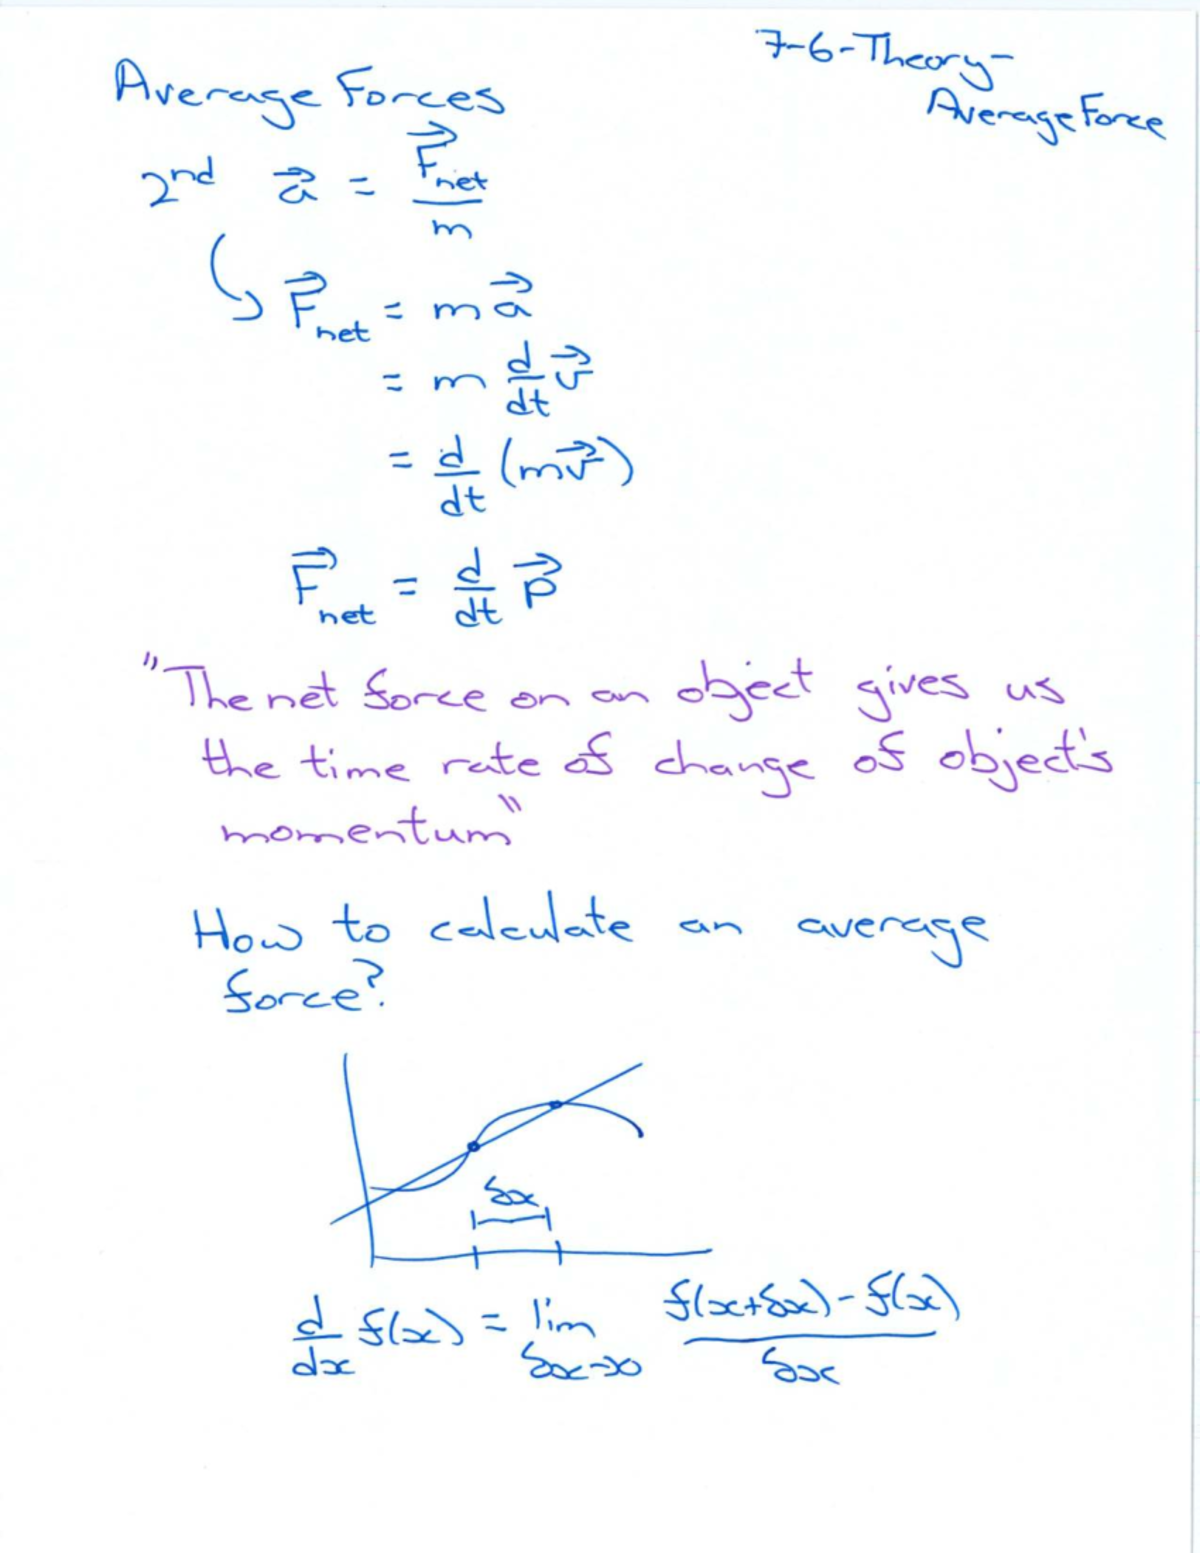 7-6-Theory-
Average Force
Average Forces
2nd a⃗ = F⃗net / m
F⃗net = m a⃗
= m d/dt v⃗
= d/dt (mv⃗)
F⃗net = d/dt p⃗
"The net force on an object gives us
the time rate of change of object's
momentum"
How to calculate an average
force?
δx
d/dx f(x) = lim δx→0 f(x+δx)-f(x) / δx